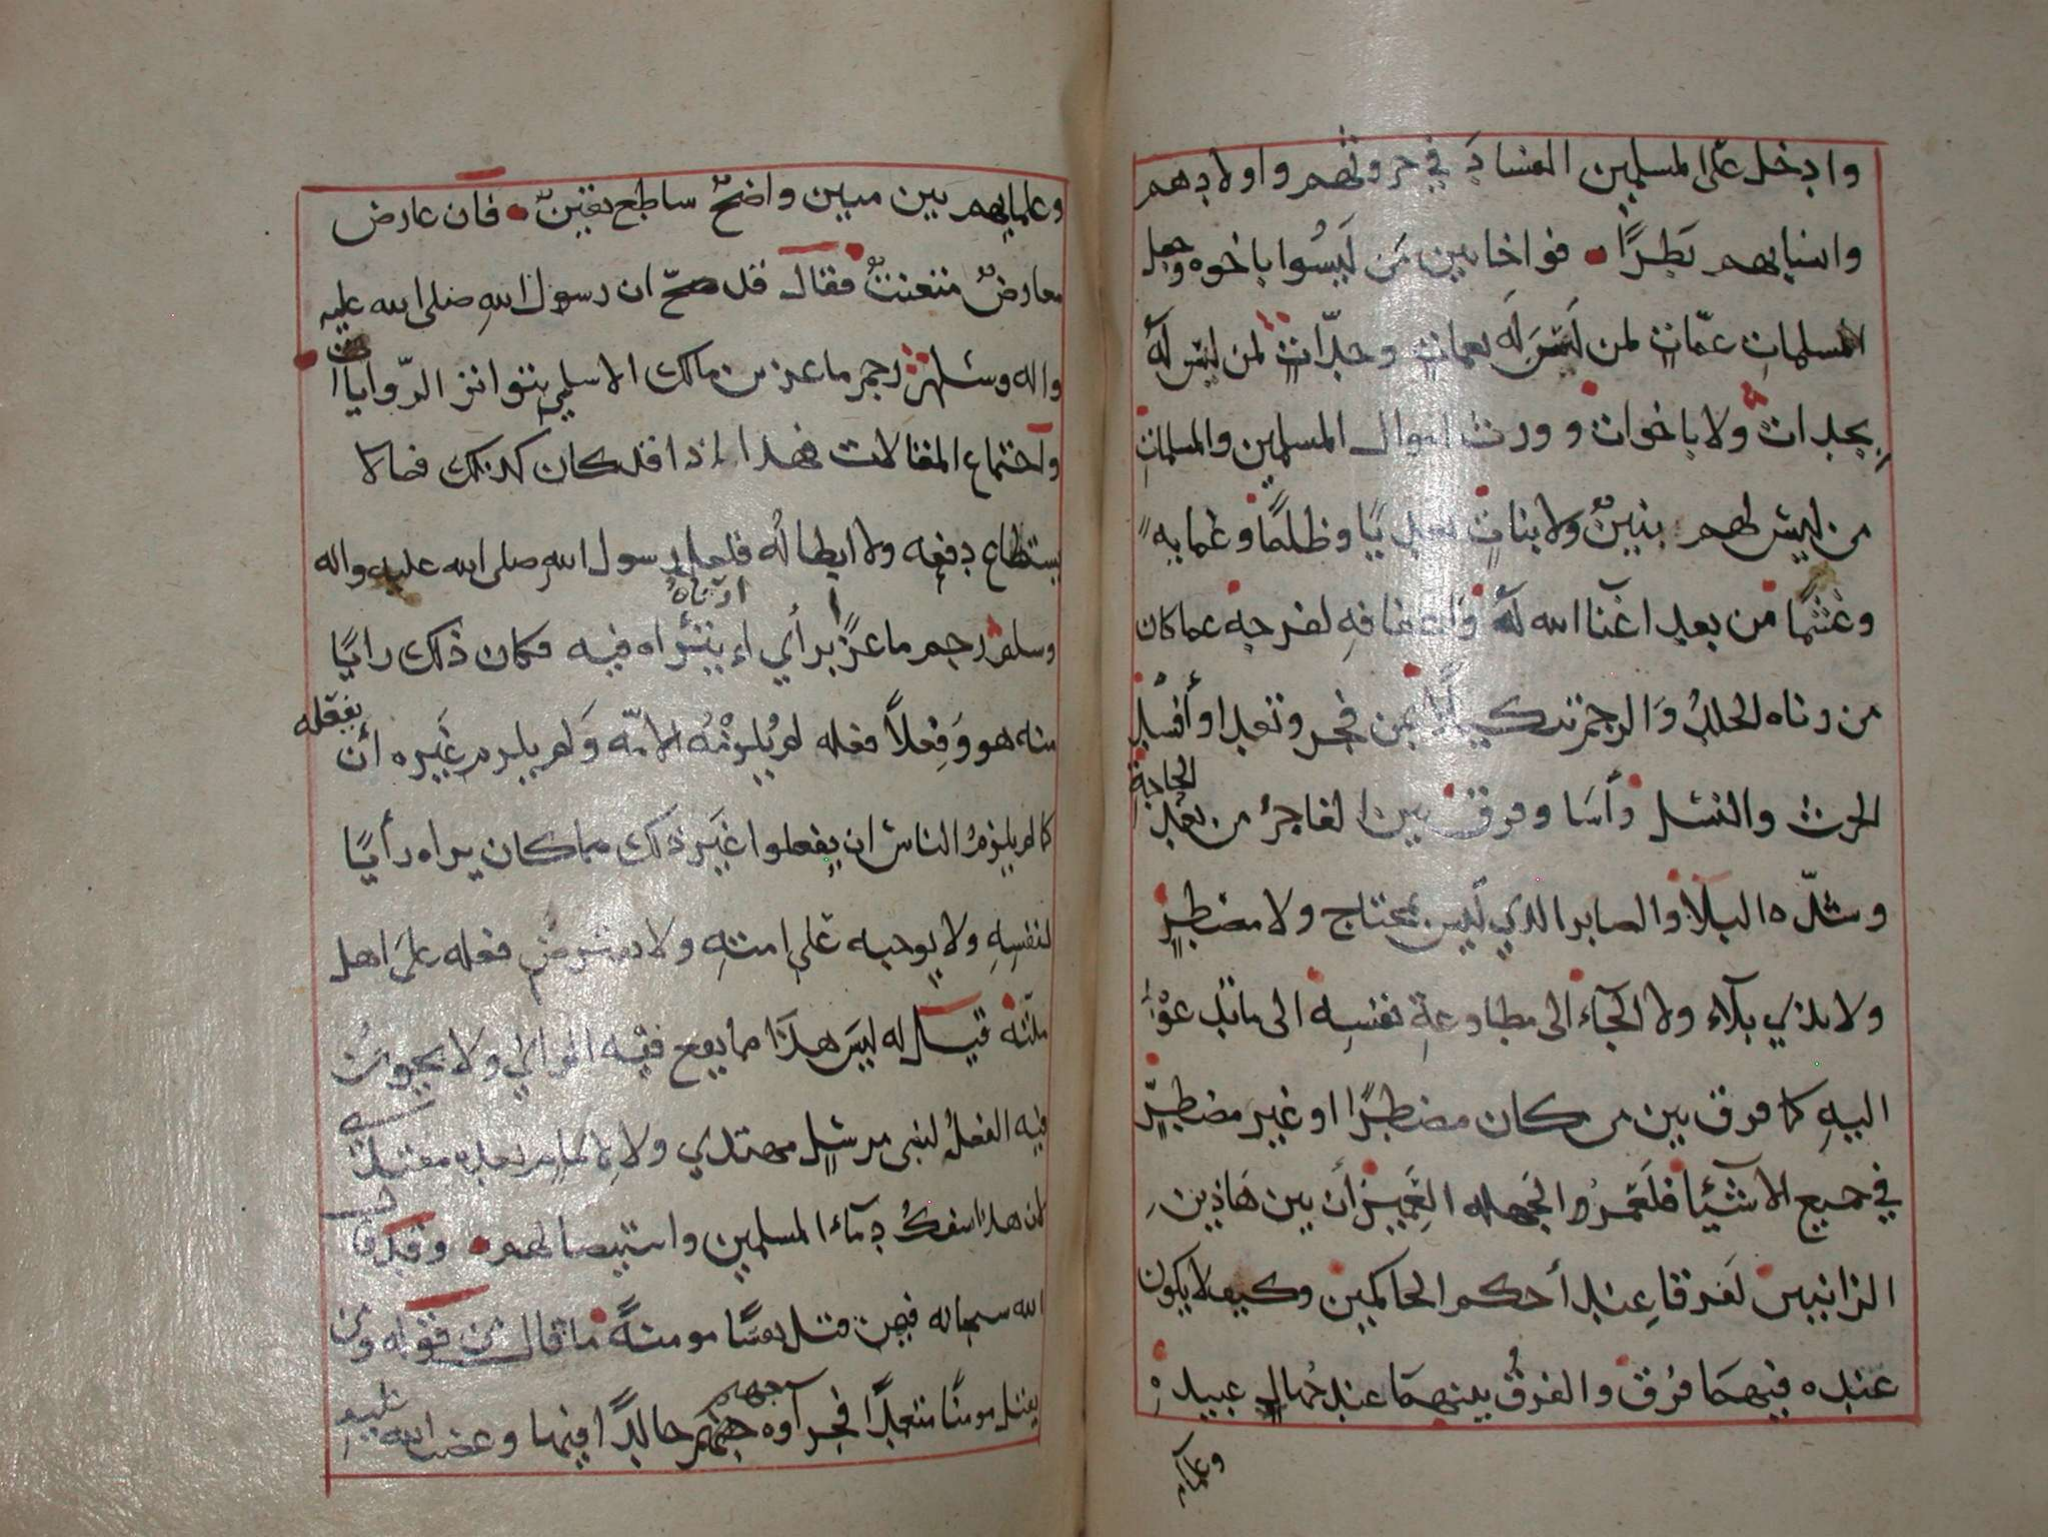 وادخل على المسلمين الفساد في حروثهم واولادهم
وانسابهم بَطِرًا فواخا بين مَن لَيسُوا باخوه وجعل
المسلماتِ عمّاتٍ لمن لَيسَ لَه بعماتٍ وجدّاتٍ لمن ليس لَه
بجدات ولا باخوات وورث اموال المسلمين والمسلماتِ
من ليس لهم ببنين ولا بناتٍ تعديًا وظلمًا وغما به
وغشمًا من بعد اغنا الله لَهُ واعفافهِ لفرجه عما كان
من زناه الجلدُ وَالرجم تنكيلًا بمن فجر وتعدا وأفسد
الحرث والنسل وأسَا وفرق بين الفاجر من بعد الحاجة
وشدّه البلاء والصابر الذي ليس بمحتاج ولا مضطرٍ
ولا بذي بلآء ولا الجآء الى مطاوعةِ نفسِه الى ما تدعوا
اليهِ كما فرق بين من كان مضطرًا او غير مضطرٍّ
في جميع الاشيَا فلعَمرُ الجهله العَميين أن بين هَاذين
الزانيين لَفرقا عِند أحكم الحاكمين وكيف لا يكون
عنده فيهما فرق والفرقُ بينهما عند جُهال عبيده
وعلما
وعلمايهم بين مبين واضحٌ ساطع يقينٌ فان عارض
معارضٌ متعنتٌ فقال قد صحّ ان رسول اللهِ صلى الله عليه
واله وسلم رجم ماعز بن مالك الاسلمي بتواتر الرّوايات
واجتماع المقالات فهذا اذا قد كان كذلك فما لا
يستطاع دفعه ولا ابطالُه فلعل رسول الله صلى الله عليه واله
وسلم رجم ماعزًا برأي ارتآهُ فيه فكان ذلك رايًا
منه هو وَفِعلًا فعله لم يُلزِمْهُ الامّه وَلم يلزم غَيره أن يفعله
كما لم يلزمُ الناس ان يفعلوا غَير ذلك مما كان يراه رأيًا
لنفسِهِ ولا يوجبه على امتهِ ولا فعله على اهل
ملّته قيل له ليسَ هذَا مما يقع فيه الراي ولا يجوز
فيه الفعلُ لنبي مرسلٍ مهتدي ولا لامام بعده مقتدى
لان هذا سفكُ دمآء المسلمين واستيصالهم وقد قال
الله سبحانه فيمن قتل نفسًا مومنةً ما قال من قوله ومن
يقتل مومنًا متعمدًا فجزآوه جهنم خالدًا فيها وغضب الله عليه